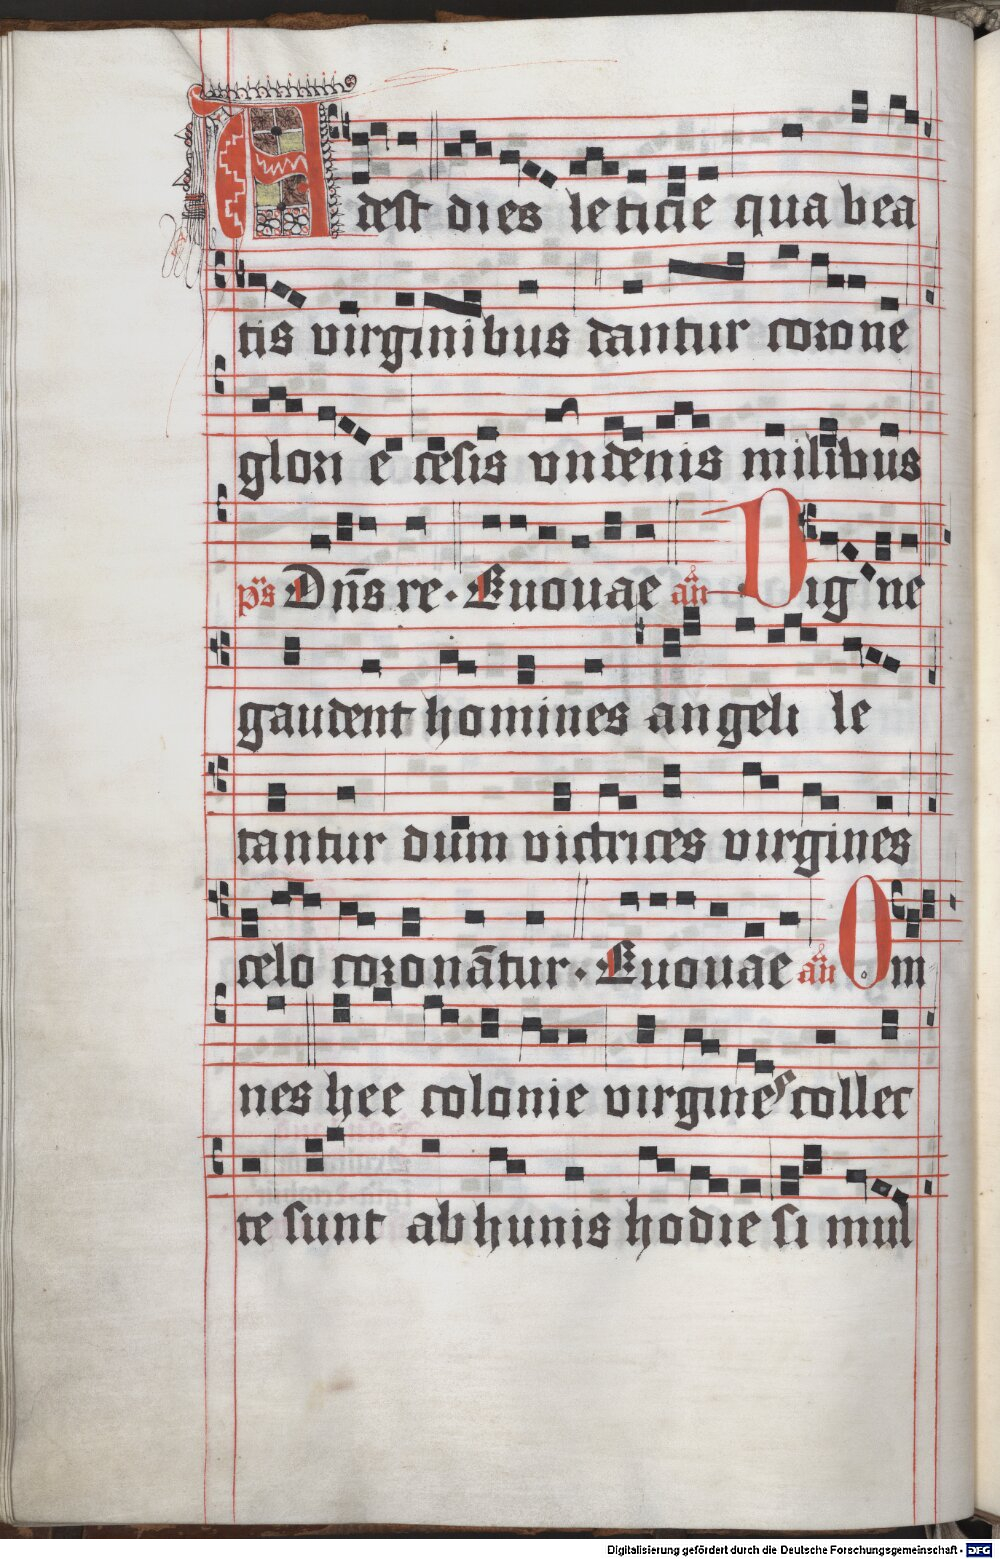 Adest dies leticie qua bea
tis virginibus dantur corone
glori e celsis vndenis milibus
p̄s Dn̄s re. Euouae an̄ Digne
gaudent homines angeli le
tantur dum victrices virgines
celo coronātur. Euouae an̄ Om
nes hee colonie virgines collec
te sunt ab hunis hodie simul
Digitalisierung gefördert durch die Deutsche Forschungsgemeinschaft - DFG